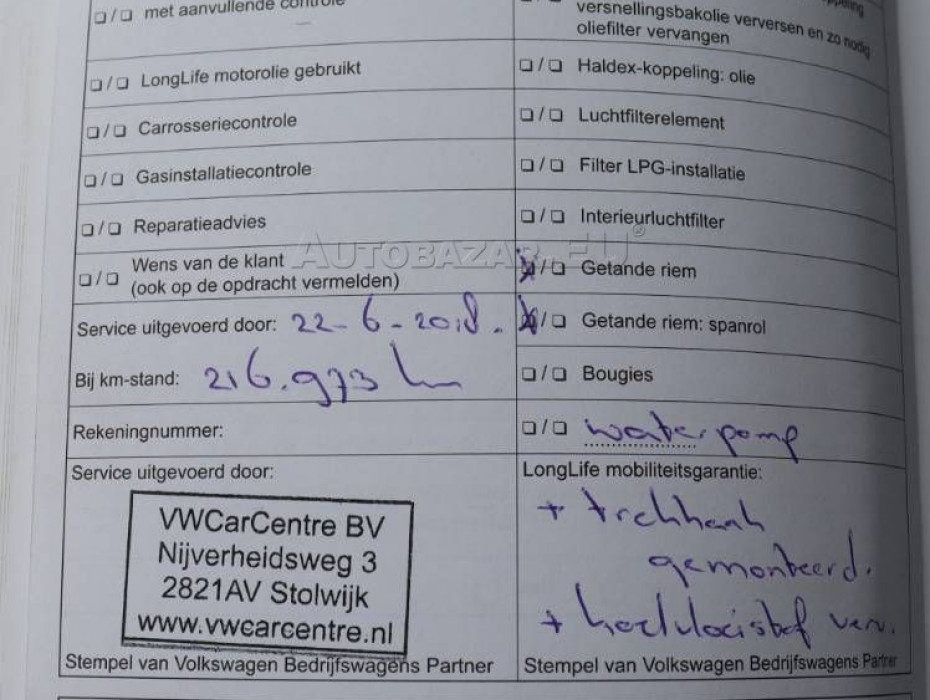 ☐/☐ met aanvullende controle
versnellingsbakolie verversen en zo nodig
oliefilter vervangen
☐/☐ LongLife motorolie gebruikt
☐/☐ Haldex-koppeling: olie
☐/☐ Carrosseriecontrole
☐/☐ Luchtfilterelement
☐/☐ Gasinstallatiecontrole
☐/☐ Filter LPG-installatie
☐/☐ Reparatieadvies
☐/☐ Interieurluchtfilter
AUTOBAZAR.EU
☐/☐ Wens van de klant
(ook op de opdracht vermelden)
☒/☐ Getande riem
Service uitgevoerd door: 22-6-2018.
☒/☐ Getande riem: spanrol
Bij km-stand: 216.973 km
☐/☐ Bougies
Rekeningnummer:
☐/☐ waterpomp
Service uitgevoerd door:
VWCarCentre BV
Nijverheidsweg 3
2821AV Stolwijk
www.vwcarcentre.nl
Stempel van Volkswagen Bedrijfswagens Partner
LongLife mobiliteitsgarantie:
+ trekhaak
gemonteerd.
+ koelvloeistof verv.
Stempel van Volkswagen Bedrijfswagens Partner